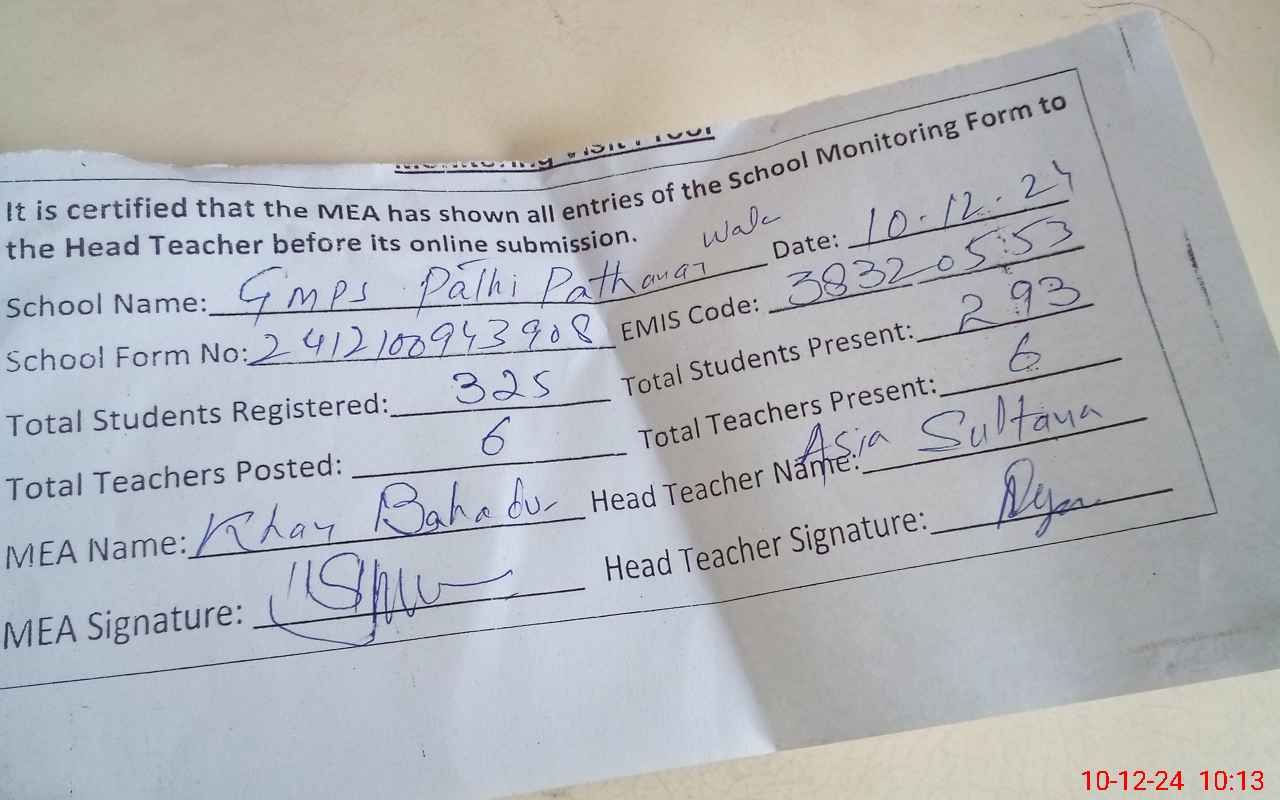 Monitoring Visit Proof
It is certified that the MEA has shown all entries of the School Monitoring Form to
the Head Teacher before its online submission.
School Name: GMPS Pathi Pathanan Wala Date: 10-12-24
School Form No: 2412100943908 EMIS Code: 383205553
Total Students Registered: 325 Total Students Present: 293
Total Teachers Posted: 6 Total Teachers Present: 6
MEA Name: Khan Bahadur Head Teacher Name: Asia Sultana
MEA Signature: Head Teacher Signature:
10-12-24 10:13